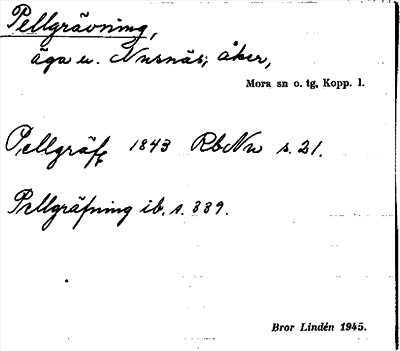 Pellgrävning,
äga u. Nusnäs; åker,
Mora sn o. tg, Kopp. l.
Pellgräf 1843 RbNu s. 21.
Pellgräfning ib. s. 339.
Bror Lindén 1945.